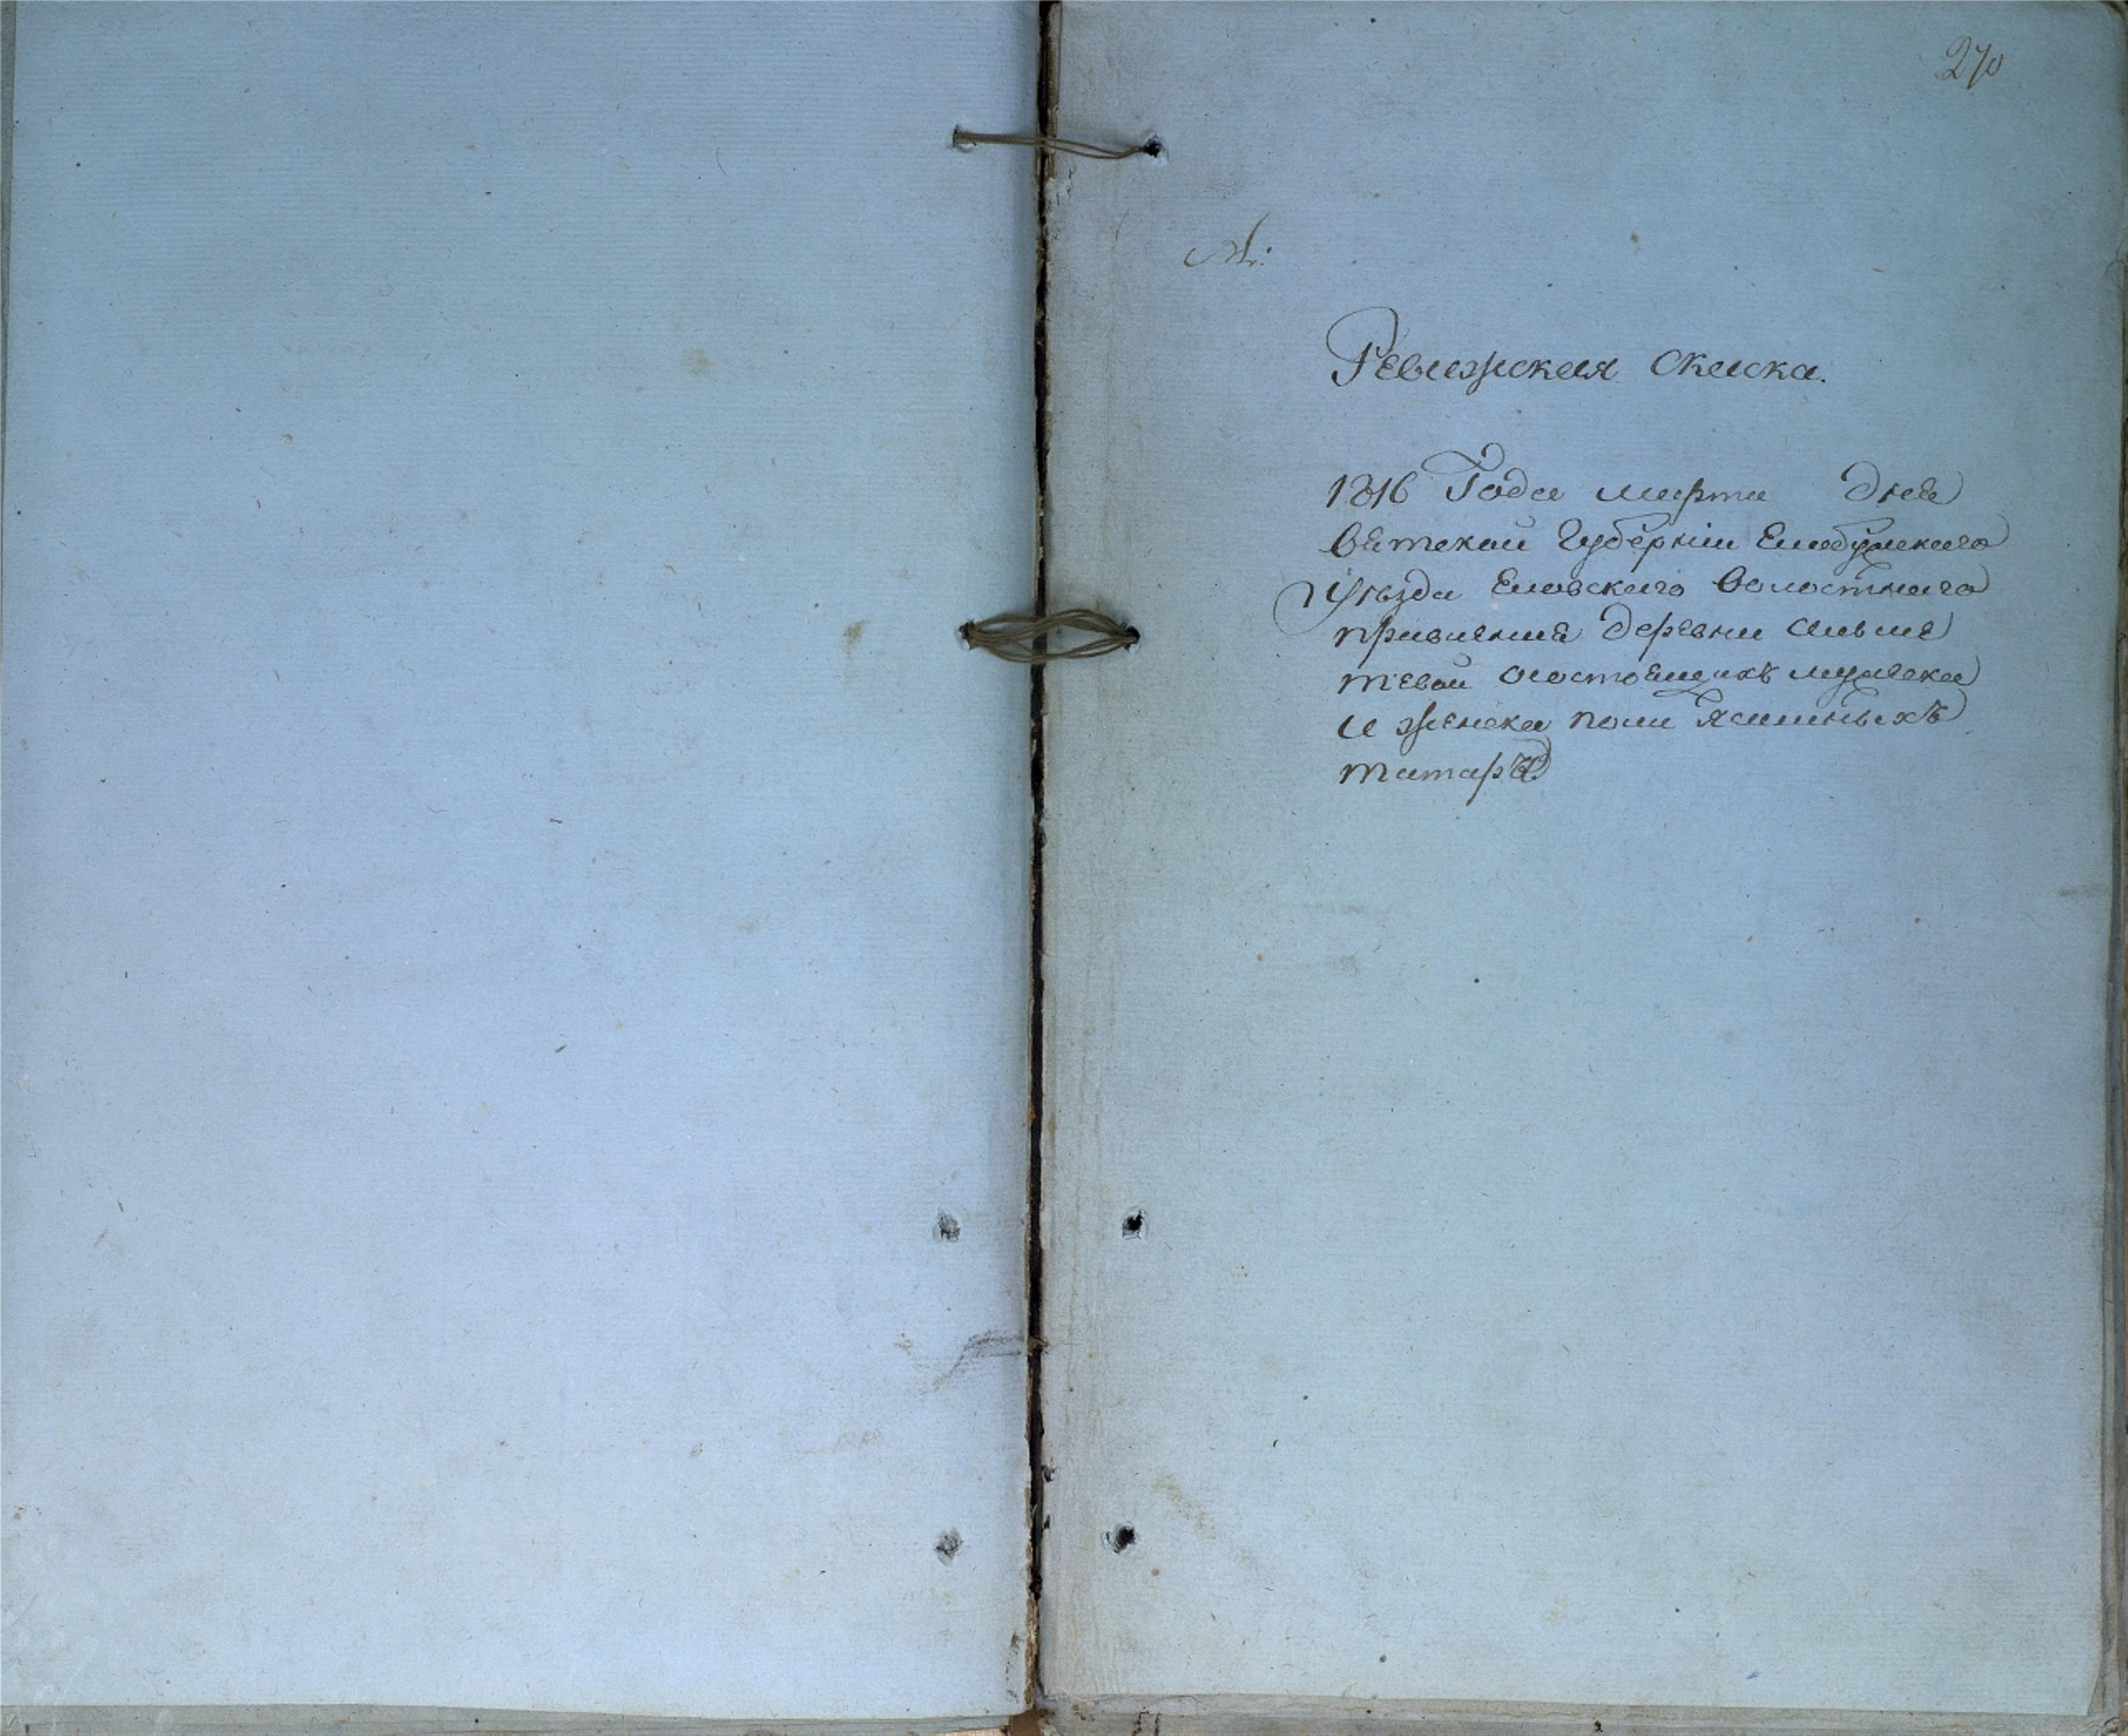 270
Ревижская скаска.
1816 Года марта дня
Вятской Губернии Елабужского
Уѣзда Еловского волостнаго
правления деревни
тевой о состоящихъ мужеска
и женска пола ясашныхъ
татаръ